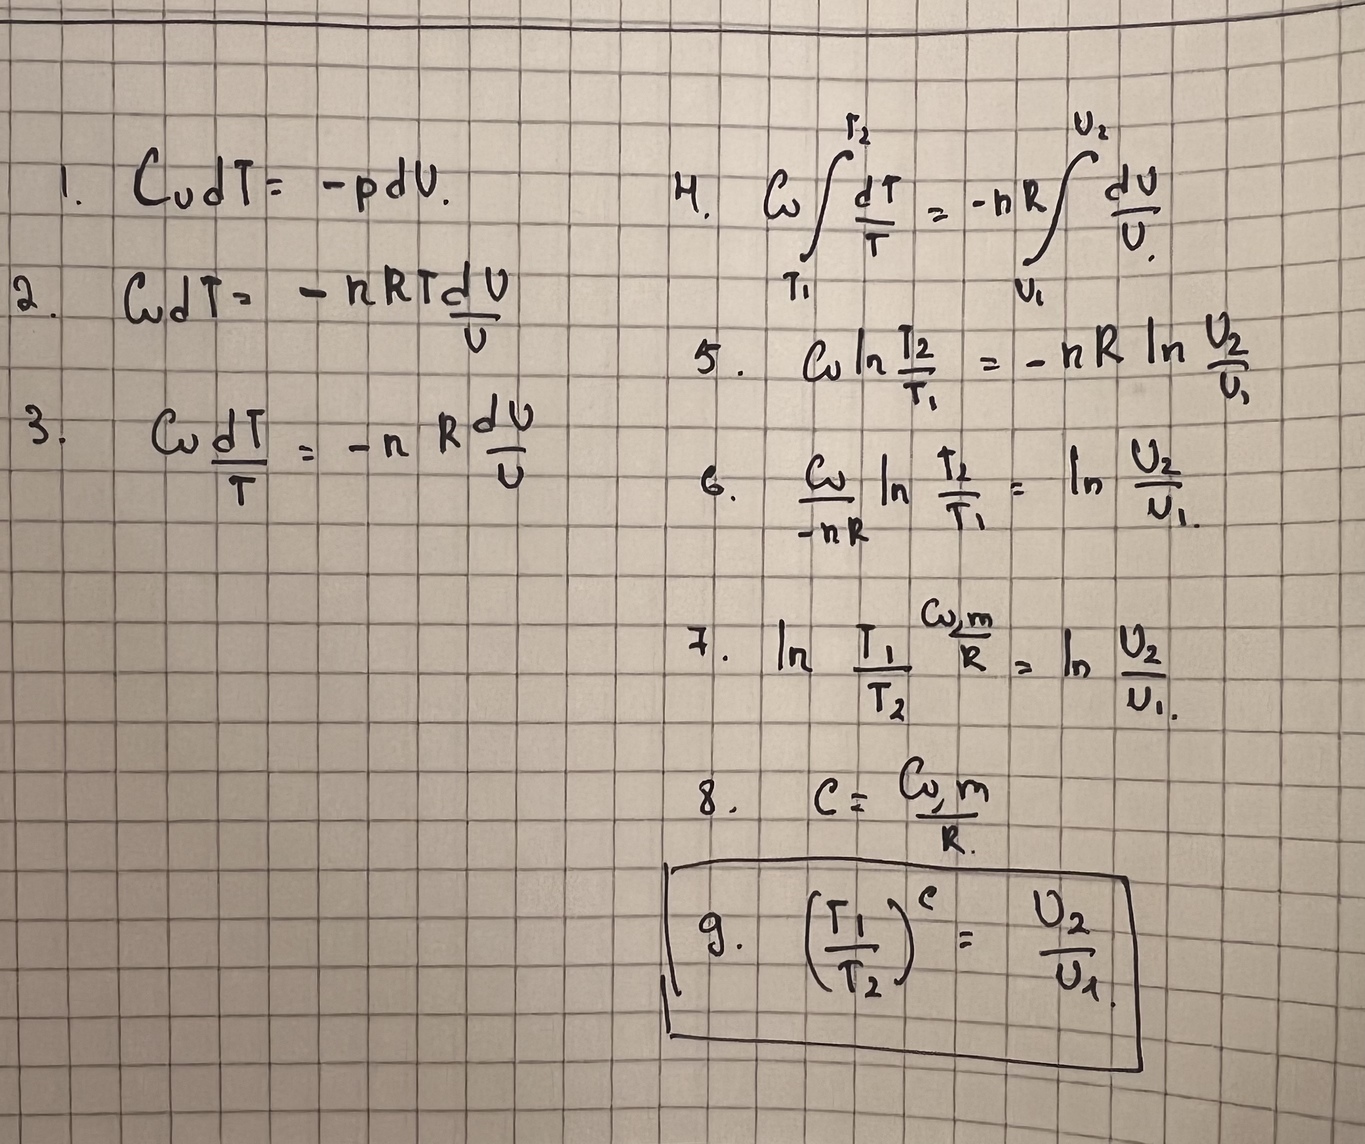 1. CvdT = -pdV.
2. CvdT = -nRT dV/V
3. Cv dT/T = -n R dV/V
4. Cv ∫_{T1}^{T2} dT/T = -nR ∫_{V1}^{V2} dV/V.
5. Cv ln T2/T1 = -nR ln V2/V1
6. Cv/-nR ln T2/T1 = ln V2/V1.
7. ln T1/T2^{Cv,m/R} = ln V2/V1.
8. C = Cv,m/R.
9. (T1/T2)^c = V2/V1.